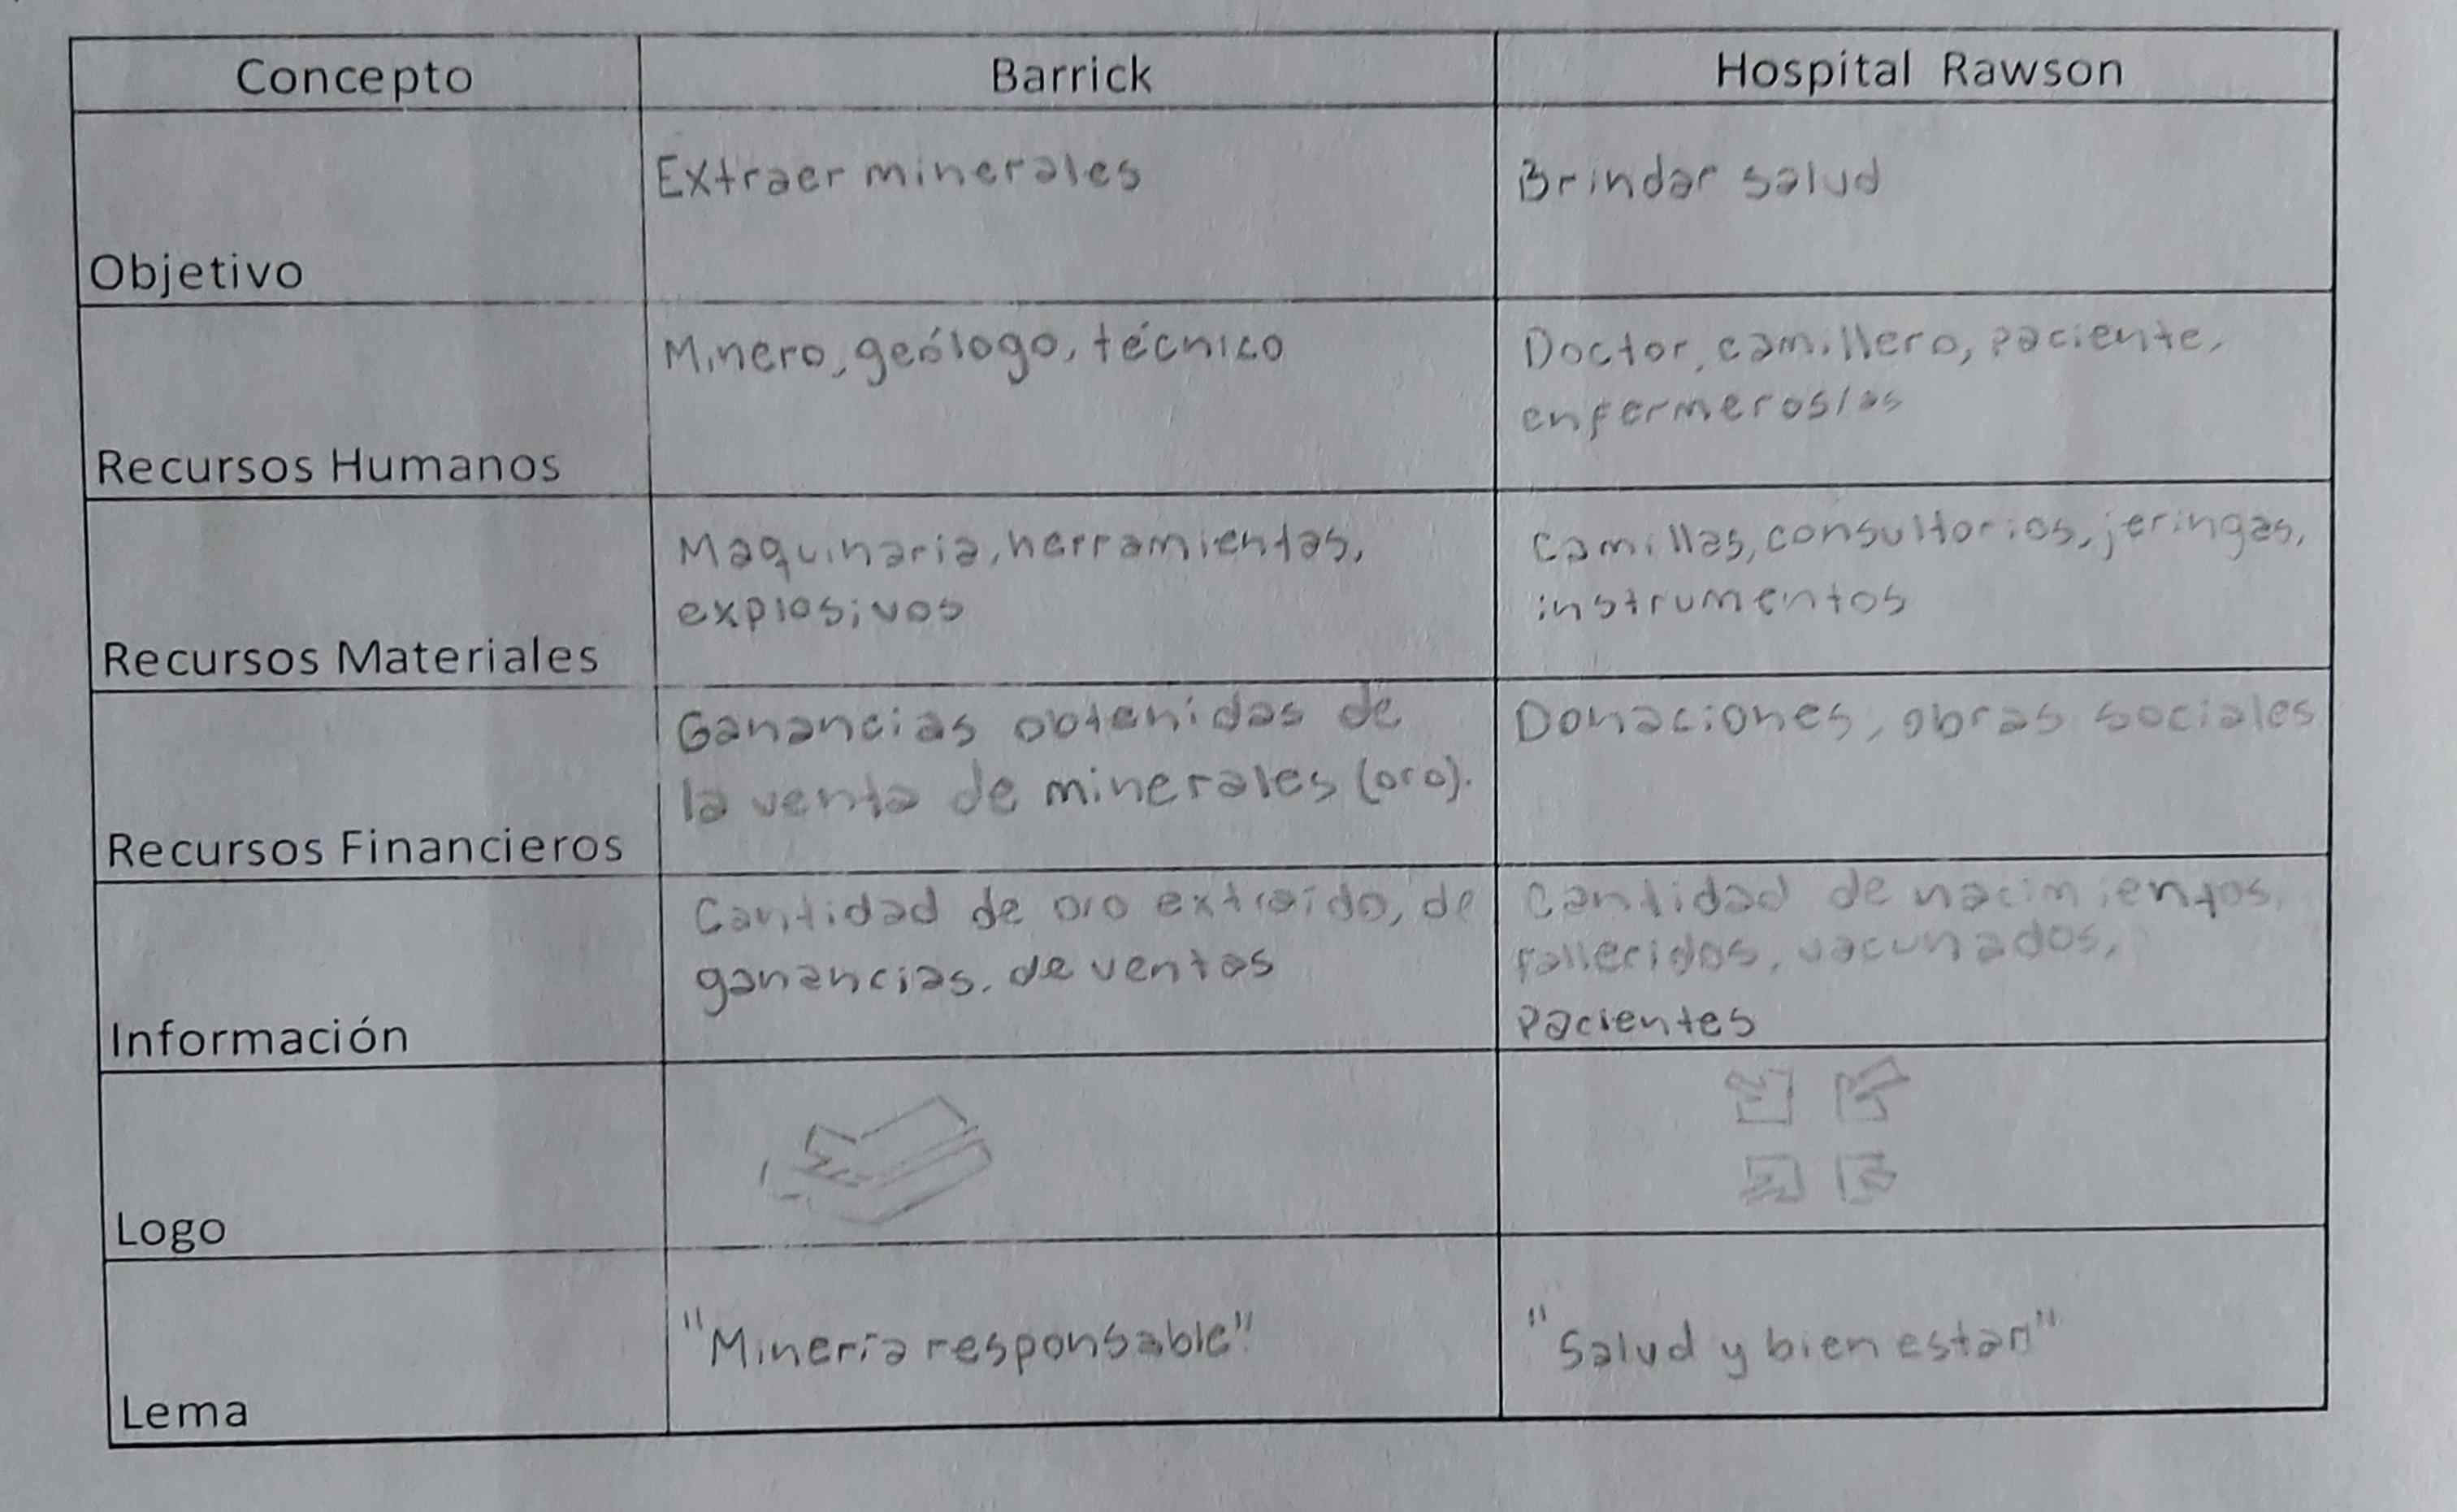 Concepto Barrick Hospital Rawson
Objetivo
Extraer minerales
Brindar salud
Recursos Humanos
Minero, geólogo, técnico
Doctor, camillero, paciente,
enfermeros/as
Recursos Materiales
Maquinaria, herramientas,
explosivos
Camillas, consultorios, jeringas,
instrumentos
Recursos Financieros
Ganancias obtenidas de
la venta de minerales (oro).
Donaciones, obras sociales
Información
Cantidad de oro extraído, de
ganancias, de ventas
Cantidad de nacimientos,
fallecidos, vacunados,
Pacientes
Logo
Lema
"Minería responsable"
"Salud y bien estar"